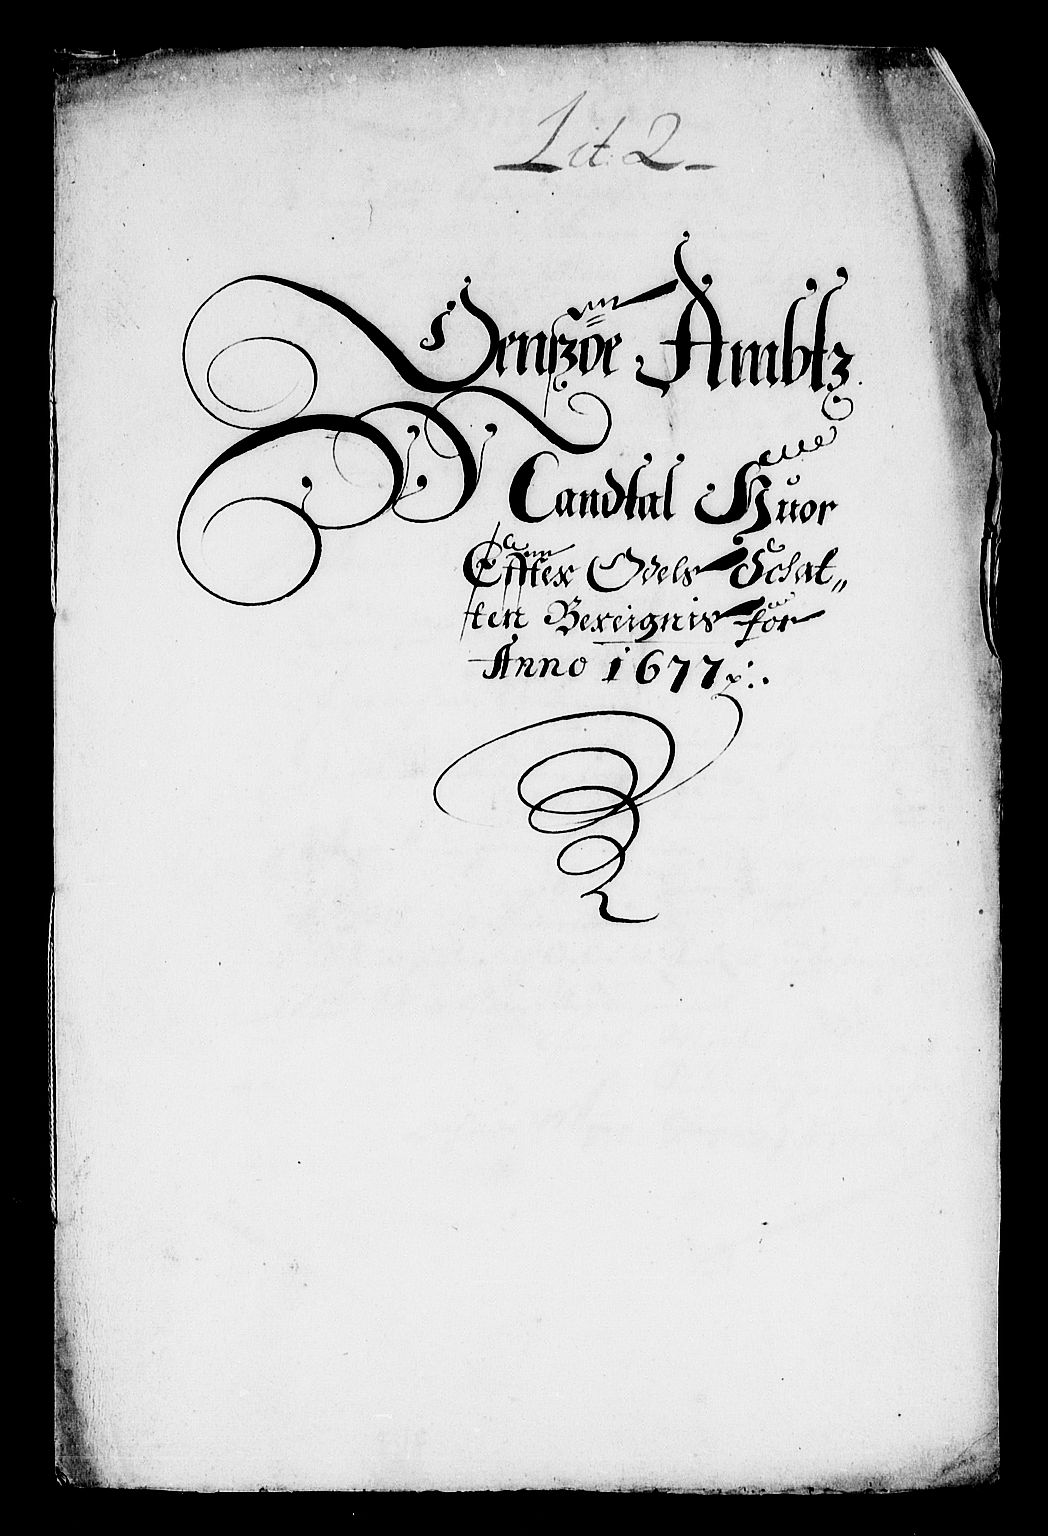 Lit: 2
Jenszöe Ambtz
Mandtal Huor
Effter Odels Schat„
ten Bereignis for
Anno 1677